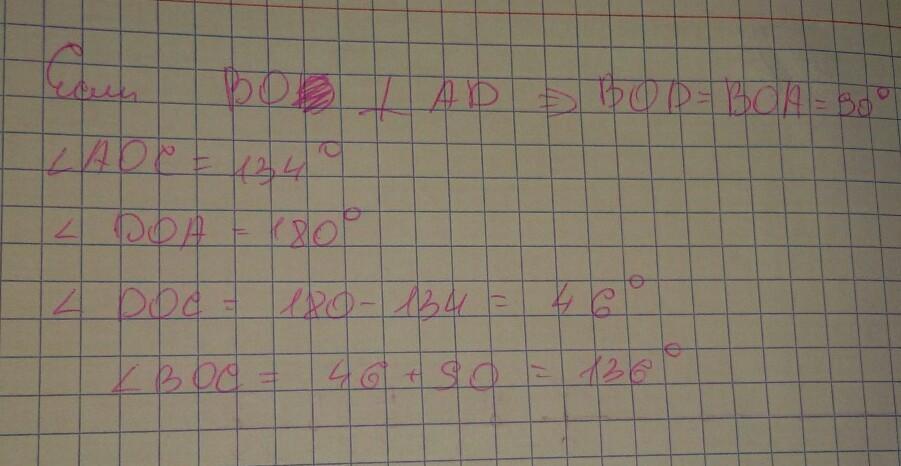 Если BO ⊥ AD ⇒ BOD = BOA = 90°
∠AOC = 134°
∠ DOA = 180°
∠ DOC = 180 - 134 = 46°
∠BOC = 46 + 90 = 136°